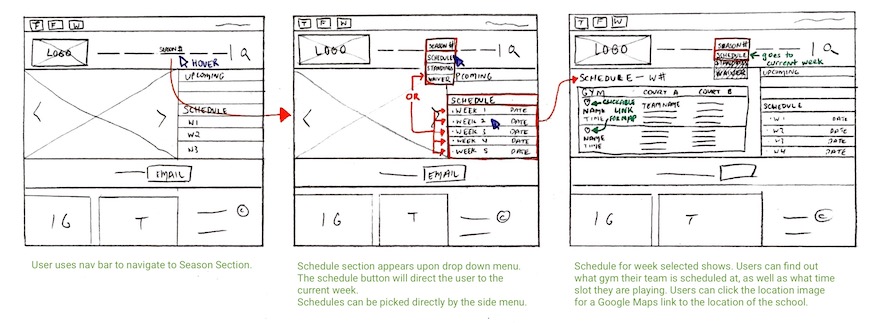 T F W
LOGO
SEASON #
Q
HOVER
UPCOMING
SCHEDULE
W1
W2
W3
EMAIL
IG
T
©
User uses nav bar to navigate to Season Section.
T F W
LOGO
SEASON #
SCHEDULE
STANDINGS
WAIVER
Q
PCOMING
OR
SCHEDULE
· WEEK 1 DATE
· WEEK 2 DATE
· WEEK 3 DATE
· WEEK 4 DATE
· WEEK 5 DATE
EMAIL
IG
T
©
Schedule section appears upon drop down menu.
The schedule button will direct the user to the
current week.
Schedules can be picked directly by the side menu.
T F W
LOGO
SEASON #
SCHEDULE
STANDINGS
WAIVER
goes to
current week
Q
SCHEDULE - W#
UPCOMING
GYM COURT A COURT B
CLICKABLE
LINK
FOR MAP
NAME
TIME
TEAM NAME
NAME
TIME
SCHEDULE
· W1 DATE
· W2 DATE
· W3 DATE
· W4 DATE
IG
T
©
Schedule for week selected shows. Users can find out
what gym their team is scheduled at, as well as what time
slot they are playing. Users can click the location image
for a Google Maps link to the location of the school.